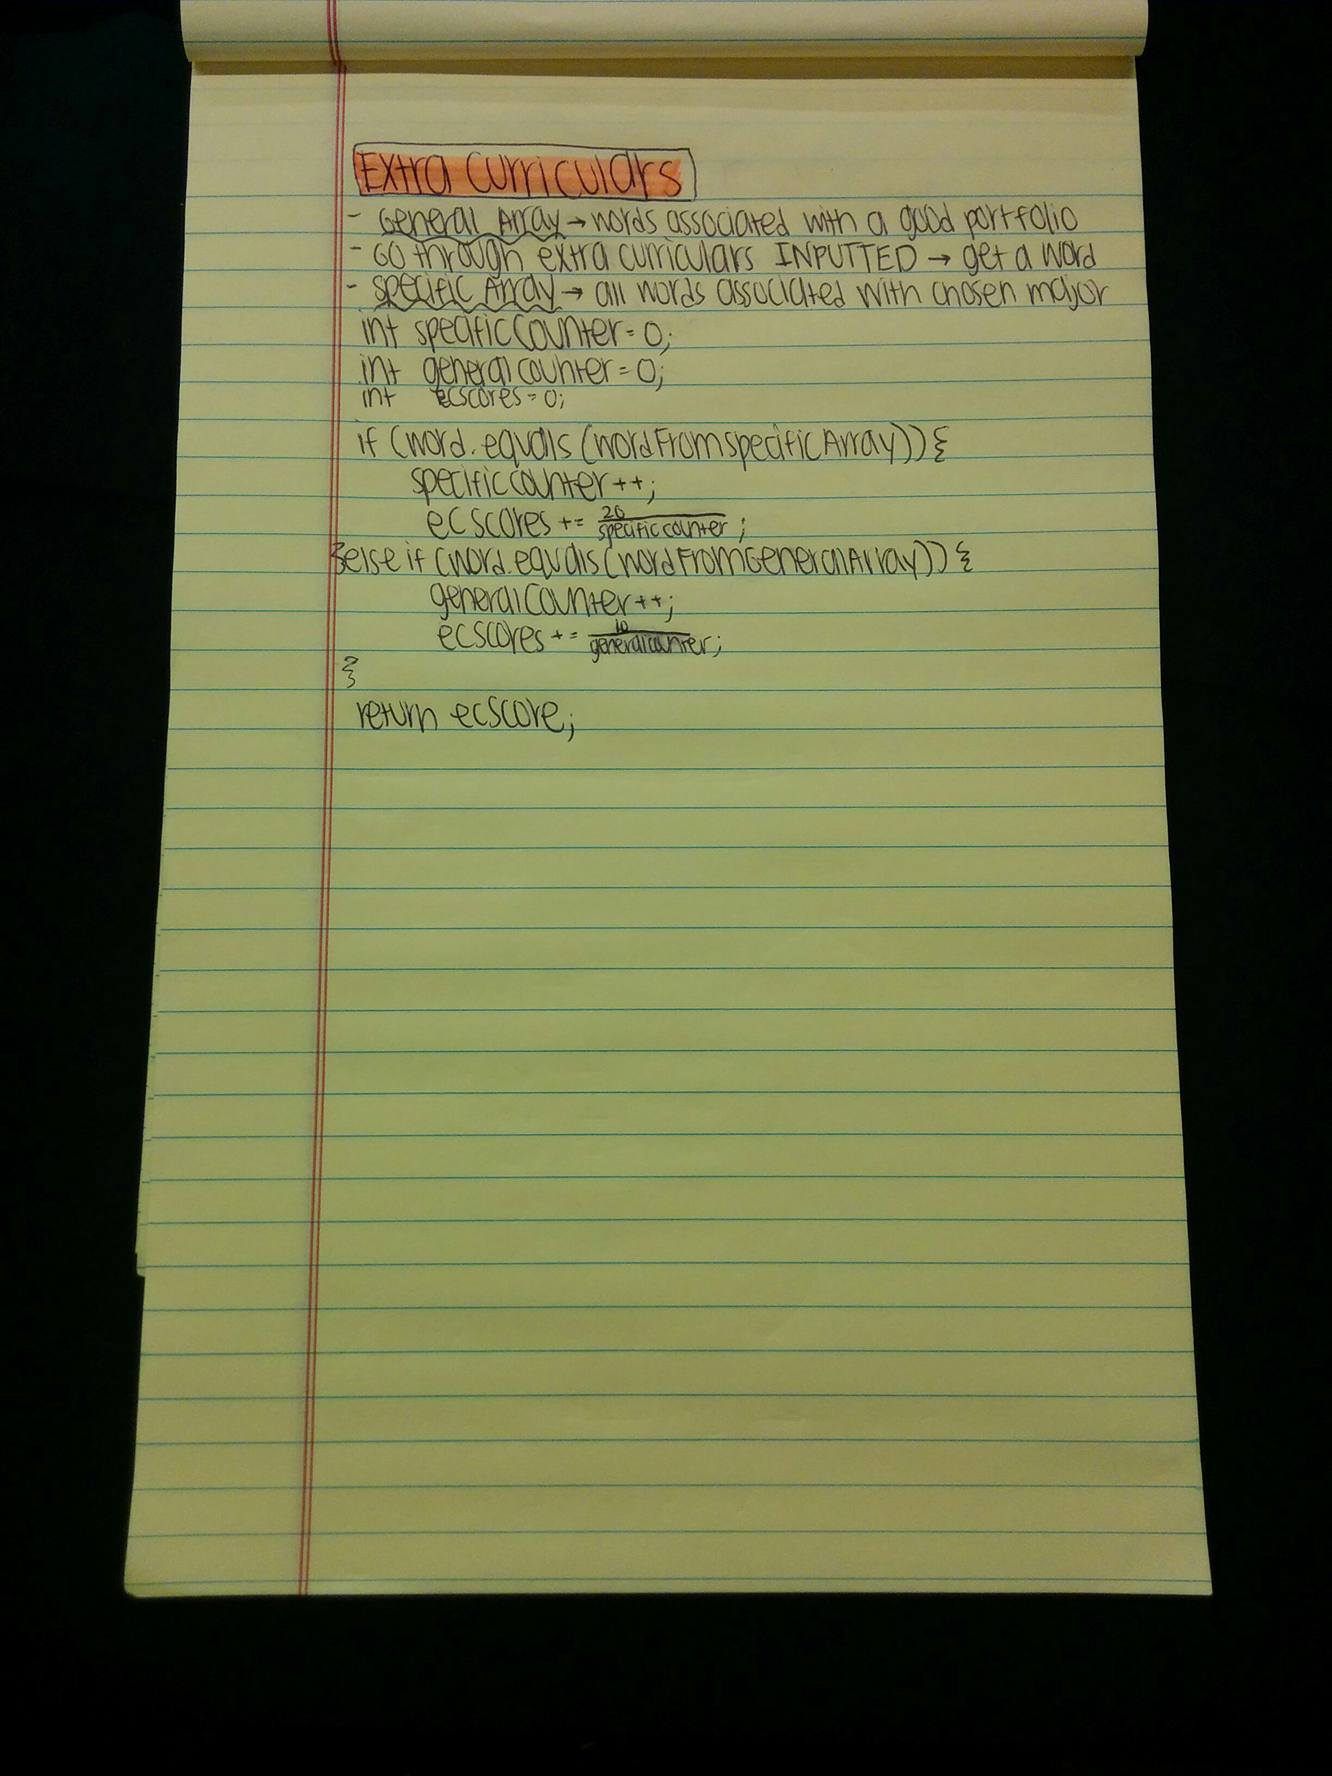 Extra Curriculars
- General Array → words associated with a good portfolio
- Go through extra curriculars INPUTTED → get a word
- Specific Array → all words associated with chosen major
int specificCounter = 0;
int generalcounter = 0;
int ecscores = 0;
if (word.equals(wordFromspecificArray)) {
specificcounter ++;
ecscores += 20/specificcounter;
}else if (word.equals(wordFromGeneralArray)) {
generalCounter ++;
ecscores += 10/generalcounter;
}
return ecscore;